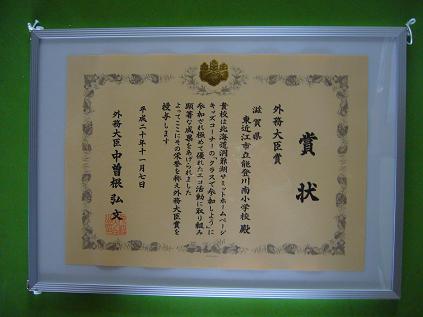 賞状
外務大臣賞
滋賀県
東近江市立能登川南小学校 殿
貴校は北海道洞爺湖サミットホームページ
キッズコーナーの「クラスで参加しよう」に
参加され極めて優れたエコ活動に取り組み
顕著な成果をあげられました
よってここにその栄誉を称え外務大臣賞を
授与します
平成二十年十一月七日
外務大臣 中曽根弘文